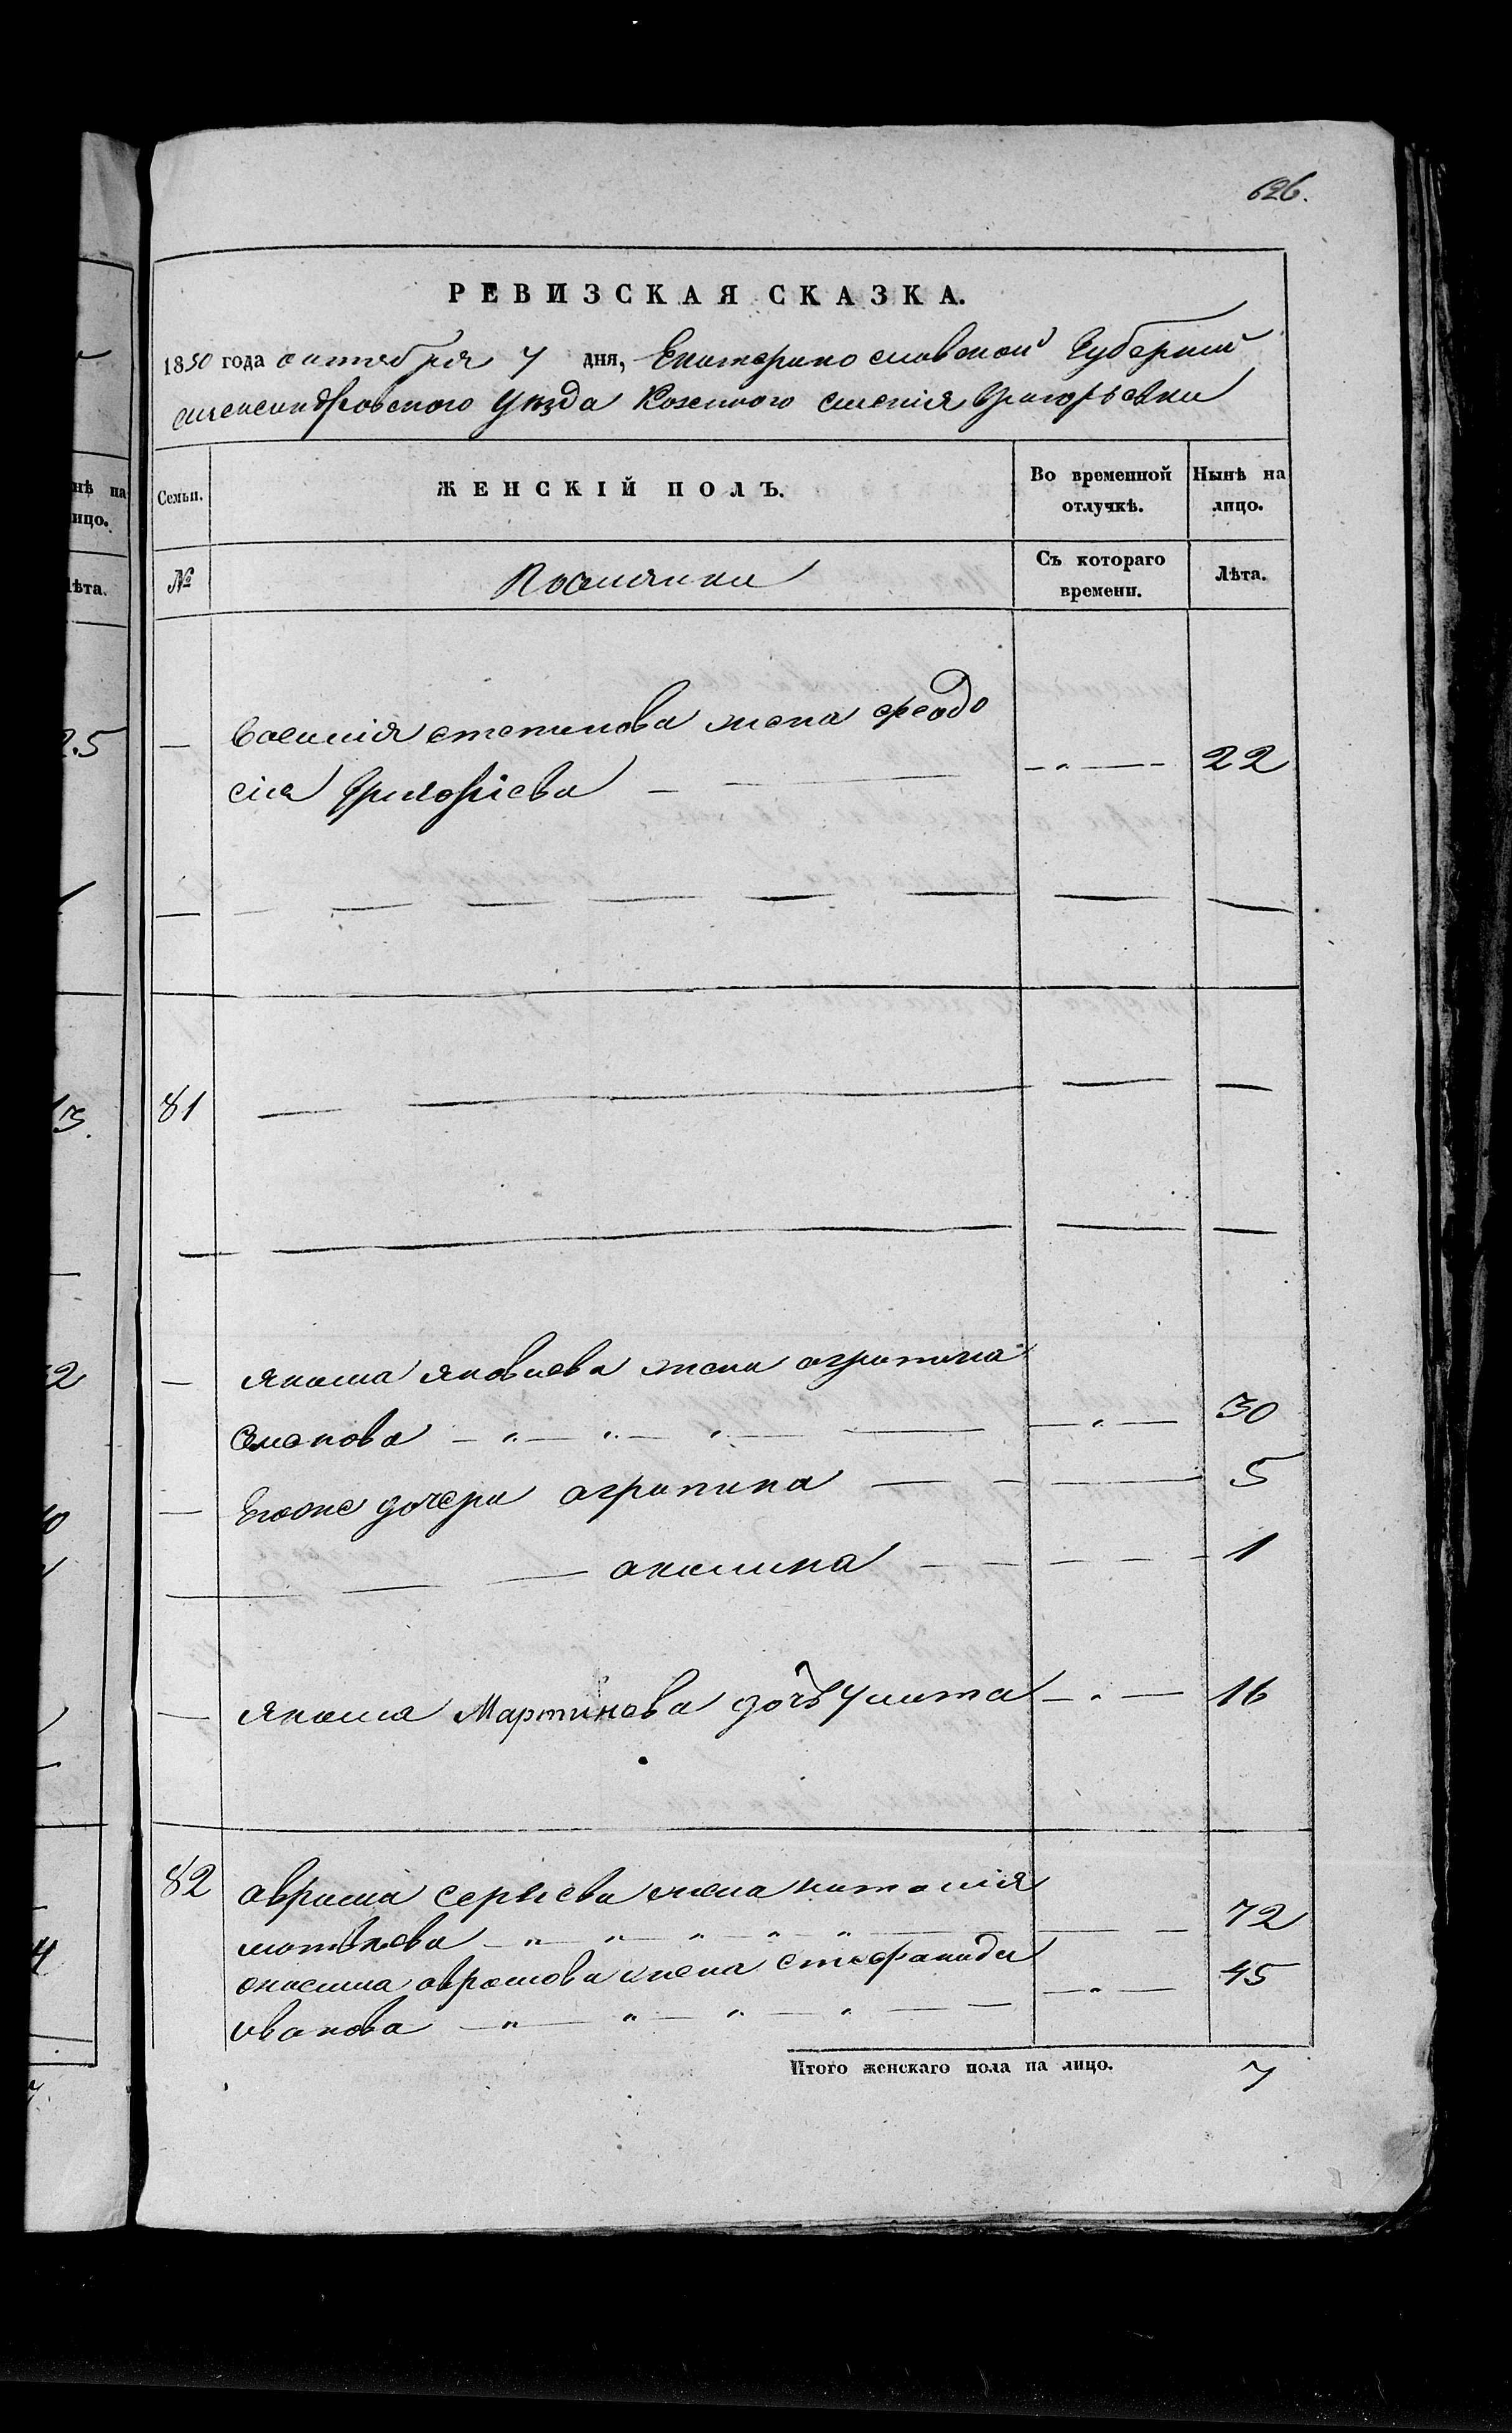 626.
РЕВИЗСКАЯ СКАЗКА.
1850 года октября 7 дня, Екатеринославской Губернии
александровского Уезда Козенного Григорьевки
Семьи. ЖЕНСКІЙ ПОЛЪ. Во временной отлучкѣ. Нынѣ на лицо.
№ Поселянки Съ котораго времени. Лѣта.
— Василія степанова жена феодо
сія Григоріева — — —„— 22
81 — — — —
— якима яковлева жена агрипина
Семенова —„— „— „— — —„— 30
— Егоже дочери агрипина — — — 5
— — — акилина — — — — — 1
— якима Мартинова дочь Улита —„— 16
82 аврама Сергіева жена наталія
матвѣева —„ „ „ „ „— — — 72
аврамова жена стефанида
иванова —„— „— „— „— — — —„— 45
Итого женскаго пола на лицо. 7
нѣ на
лицо.
Лѣта.
25
13.